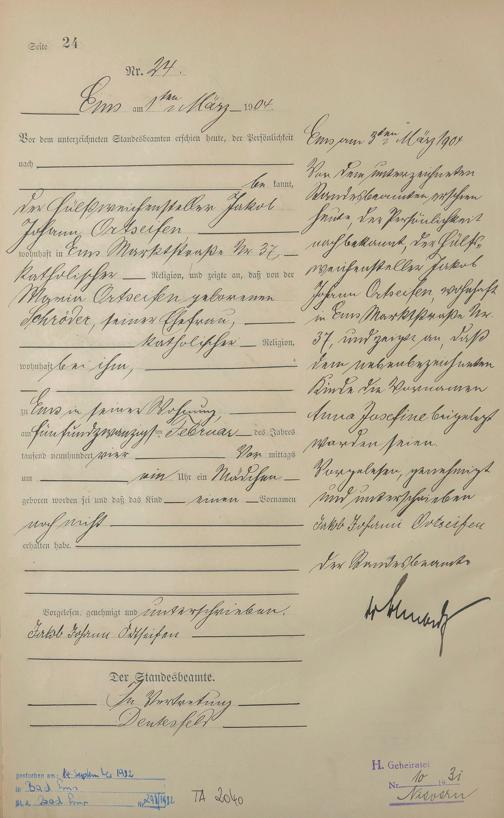 Seite 24
Nr. 24.
Ems am 1ten März 1904
Vor dem unterzeichneten Standesbeamten erschien heute, der Persönlichkeit
nach
be kannt,
der Hülfsweichensteller Jakob
Johann Ortseifen
wohnhaft in Ems Marktstraße Nr. 37,
katholischer Religion, und zeigte an, daß von der
Maria Ortseifen geborenen
Schröder, seiner Ehefrau,
katholischer Religion,
wohnhaft bei ihm,
zu Ems in seiner Wohnung,
am fünfundzwanzigsten Februar des Jahres
tausend neunhundert vier Vor mittags
um ein Uhr ein Mädchen
geboren worden sei und daß das Kind einen Vornamen
noch nicht
erhalten habe.
Vorgelesen, genehmigt und unterschrieben.
Jakob Johann Ortseifen
Der Standesbeamte.
In Vertretung
Ems am 3ten März 1904
Vor dem unterzeichneten
Standesbeamten erschien
heute, der Persönlichkeit
nach bekannt, der Hülfs-
weichensteller Jakob
Johann Ortseifen, wohnhaft
in Ems Marktstraße Nr.
37, und zeigte an, daß
dem nebenbezeichneten
Kinde die Vornamen
Anna Josefine beigelegt
worden seien.
Vorgelesen, genehmigt
und unterschrieben
Jakob Johann Ortseifen
Der Standesbeamte
gestorben am: September 1982
in Bad Ems
St.A. Bad Ems Nr.
TA 2040
H. Geheiratet
Nr. 10 1931
Nievern